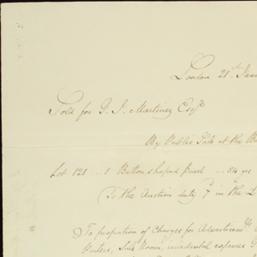 London 21st Jan
Sold for J. J. Martinez Esqr
By Public Sale at the
Lot 121 .. 1 Button shaped pearl
To the Auction duty in the £
To proportion of Charges for Advertisements
Sale Room, incidental expenses